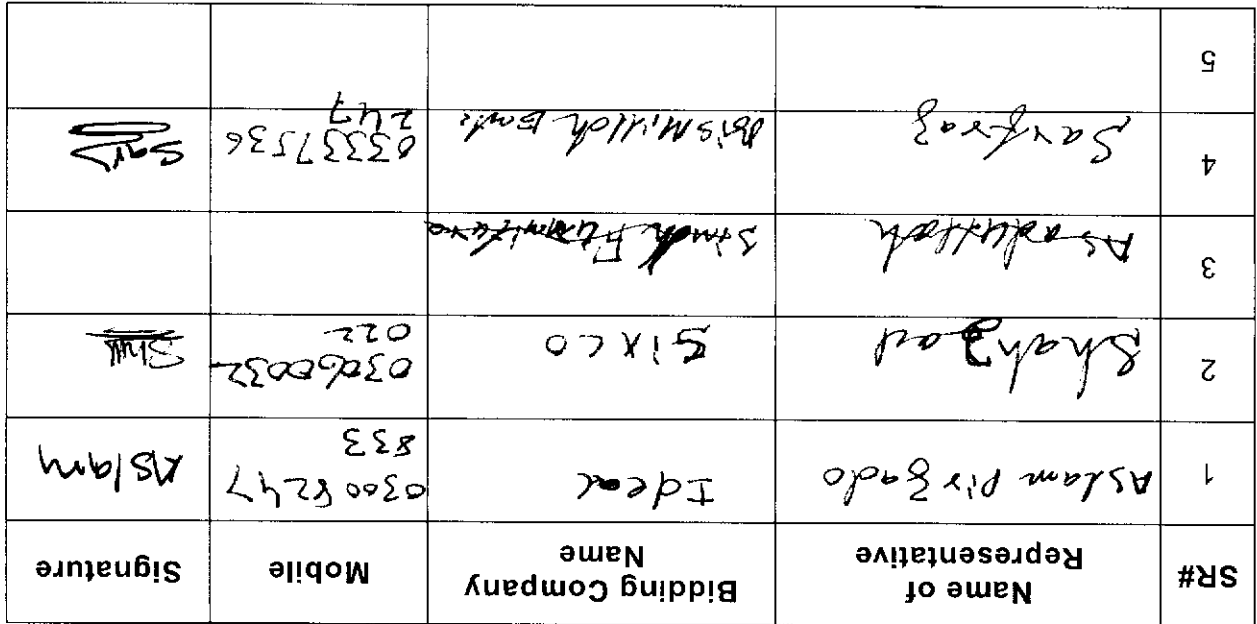 SR# Name of Representative Bidding Company Name Mobile Signature
1 Aslam Pirzado Ideal 03008247 833 Aslam
2 Shahzad Sixco 03060032 022
3 Asadullah Sindh Furniture
4 Sarfraz Bismillah Ent: 03337536 247
5